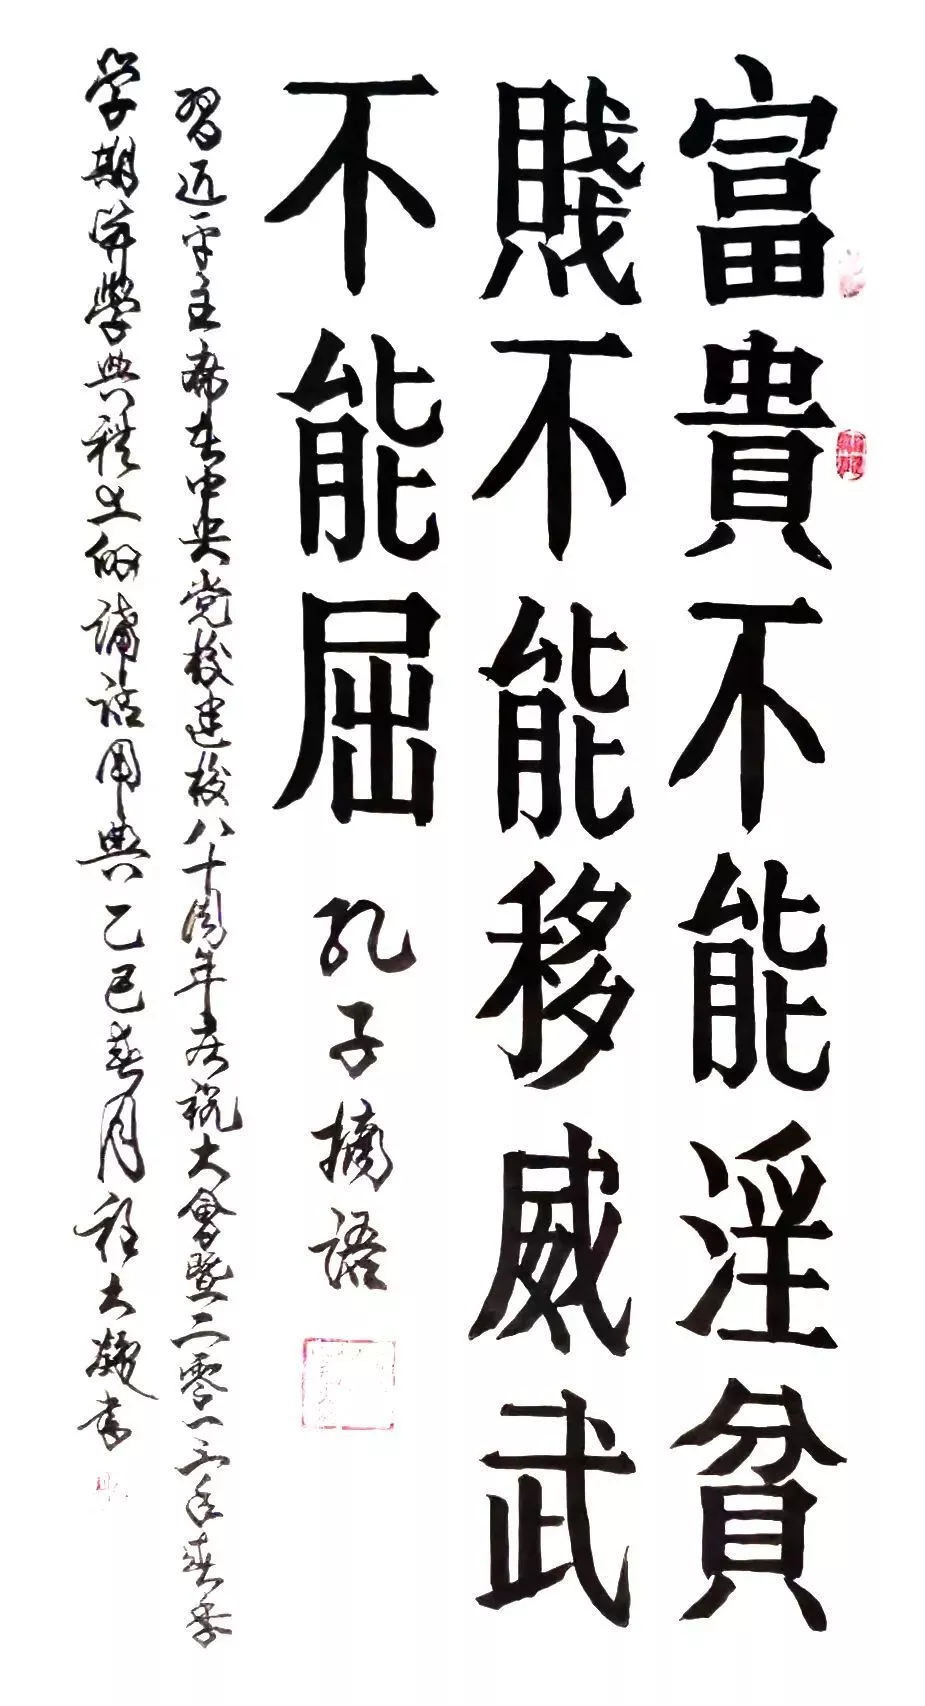 富貴不能淫貧
賤不能移威武
不能屈 孔子摘語
習近平主席在中央党校建校八十周年庆祝大會暨二零一三年春季
学期開學典禮上的講話用典乙巳春月程大凝書